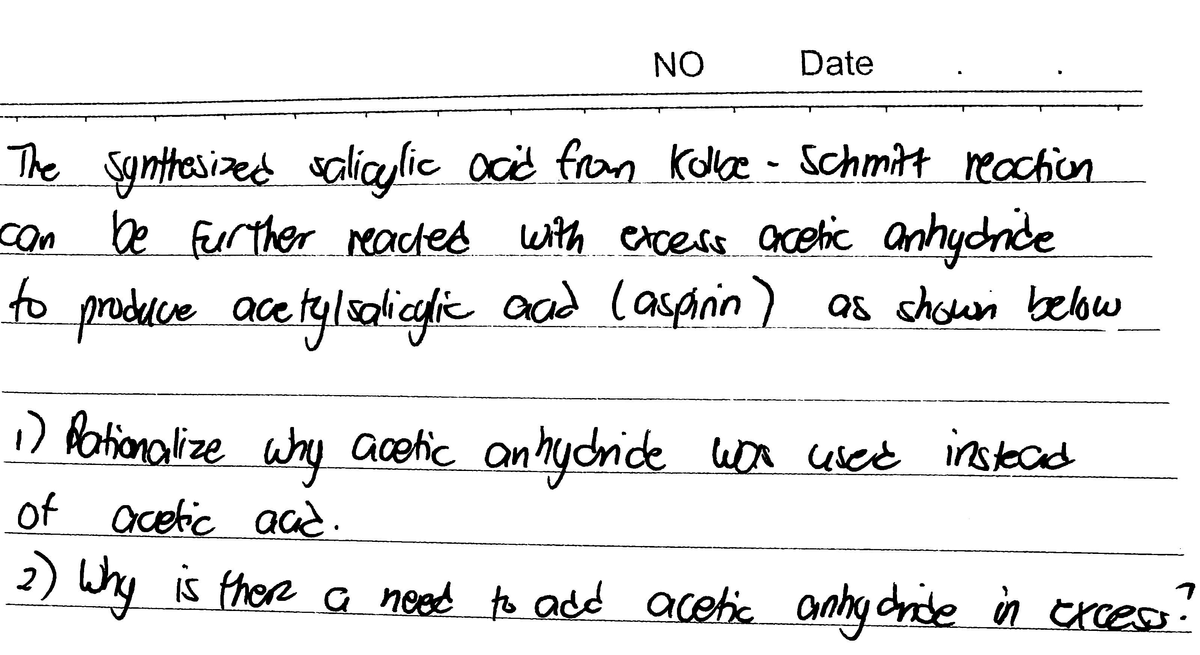 NO Date . .
The synthesized salicylic acid from Kolbe - Schmitt reaction
can be further reacted with excess acetic anhydride
to produce acetylsalicylic acid (aspirin) as shown below
1) Rationalize why acetic anhydride was used instead
of acetic acid.
2) Why is there a need to add acetic anhydride in excess?